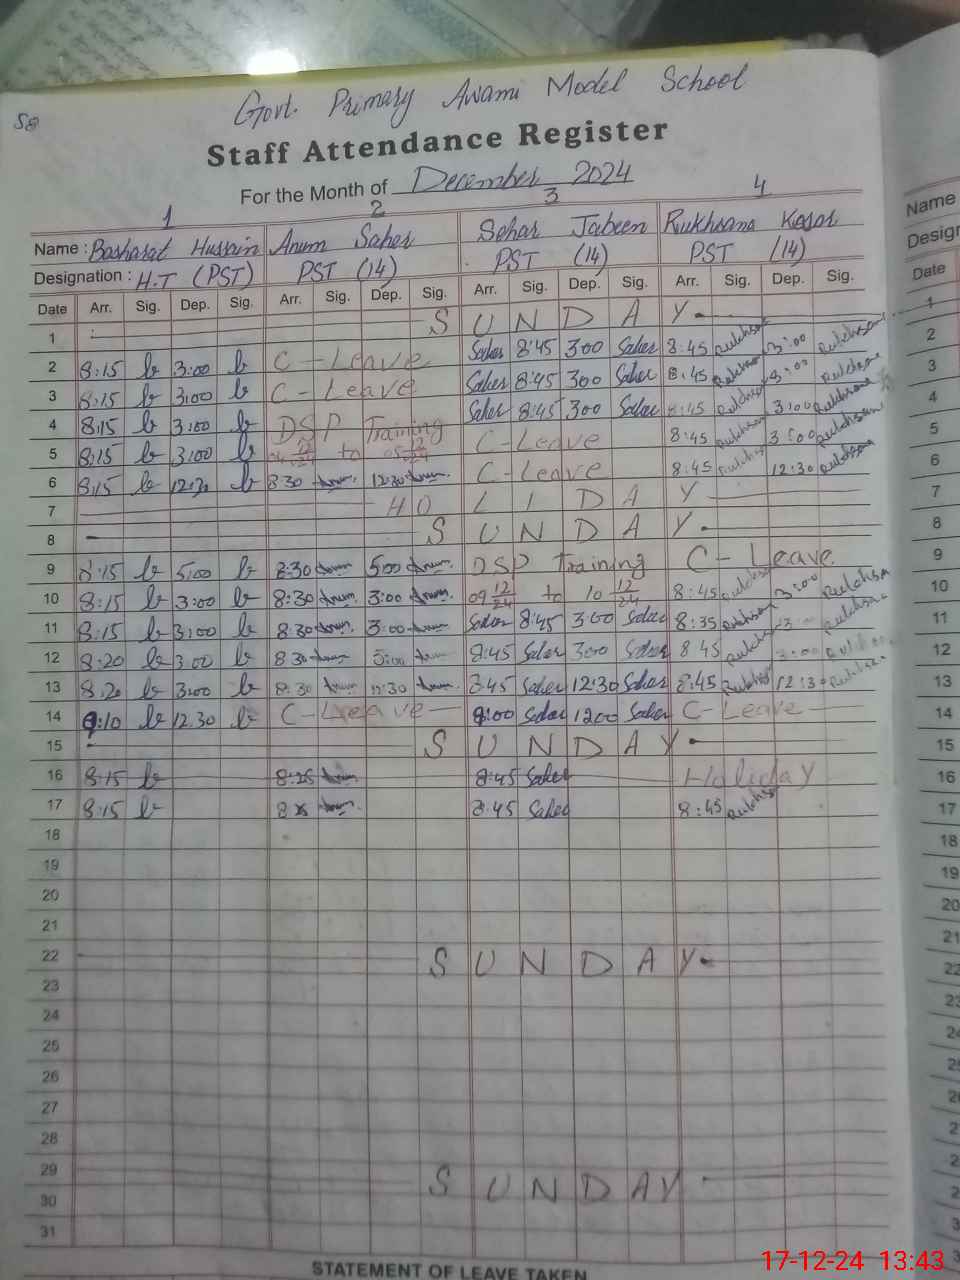 58
Govt. Primary Awami Model School
Staff Attendance Register
For the Month of December 2024
1 2 3 4
Name : Basharat Hussain Anum Saher Sehar Jabeen Rukhsana Kosar
Designation : H.T (PST) PST (14) PST (14) PST (14)
Date Arr. Sig. Dep. Sig. Arr. Sig. Dep. Sig. Arr. Sig. Dep. Sig. Arr. Sig. Dep. Sig.
1 S U N D A Y
2 8:15 3:00 C-Leave Saher 8:45 300 Saher 8:45 Rukhsana 3:00 Rukhsana
3 8:15 3:00 C-Leave Saher 8:45 300 Saher 8:45 Rukhsana 3:00 Rukhsana
4 8:15 3:00 DSP Training Saher 8:45 300 Saher 8:45 Rukhsana 3:00 Rukhsana
5 8:15 3:00 04 12/24 to 05 12/24 C-Leave 8:45 Rukhsana 3:00 Rukhsana
6 8:15 12:30 8:30 Anum. 12:30 Anum. C-Leave 8:45 Rukhsana 12:30 Rukhsana
7 HO L I D A Y
8 S U N D A Y
9 8:15 5:00 8:30 Anum 5:00 Anum. DSP Training C-Leave
10 8:15 3:00 8:30 Anum. 3:00 Anum. 09 12/24 to 10 12/24 8:45 Rukhsana 3:00 Rukhsa
11 8:15 3:00 8:30 Anum. 3:00 Anum. Saher 8:45 300 Saher 8:35 Rukhsana 3:00 Rukhsana
12 8:20 3:00 8:30 Anum. 3:00 Anum 8:45 Saher 300 Saher 8:45 Rukhsana 3:00
13 8:20 3:00 8:30 Anum 12:30 Anum. 8:45 Saher 12:30 Saher 8:45 Rukhsa 12:30 Rukhsa
14 9:10 12.30 C-Leave 9:00 Saher 1200 Saher C-Leave
15 S U N D A Y
16 8:15 8:25 Anum. 8:45 Saher Holiday
17 8:15 Anum. 8:45 Saher 8:45 Rukhsa
18
19
20
21
22 S U N D A Y
23
24
25
26
27
28
29 S U N D A Y
30
31
STATEMENT OF LEAVE TAKEN
Name
Design
Date
1
2
3
4
5
6
7
8
9
10
11
12
13
14
15
16
17
18
19
20
21
22
23
24
17-12-24 13:43